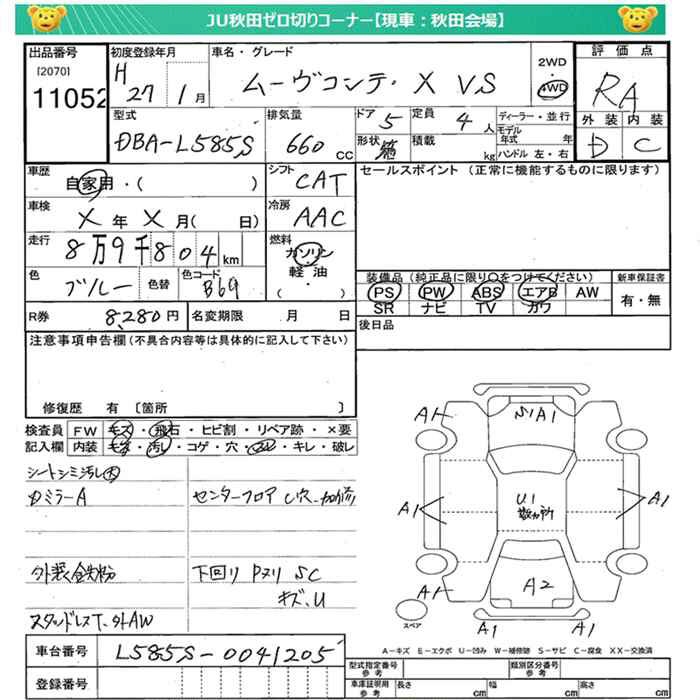 JU秋田ゼロ切りコーナー【現車：秋田会場】
出品番号 初度登録年月 車名・グレード 2WD 評価点
[2070] H 27年 1月 ムーヴコンテ・X VS 4WD RA
11052
型式 排気量 ドア 5 定員 4人 ディーラー・並行 外装 内装
DBA-L585S 660cc 形状 箱 積載 kg モデル年式 年 D C
ハンドル 左・右
車歴 シフト セールスポイント（正常に機能するものに限ります）
自家用・( ) CAT
車検 冷房
X年X月( 日) AAC
走行 燃料
8万9千804km ガソリン
軽油
( )
色 色替 色コード
ブルー B69
装備品（純正品に限り○をつけてください） 新車保証書
PS PW ABS エアB AW 有・無
SR ナビ TV カワ
R券 8,280円 名変期限 月 日
後日品
注意事項申告欄（不具合内容等は具体的に記入して下さい）
修復歴 有 〔箇所 〕
検査員 FW キズ・飛石・ヒビ割・リペア跡・×要
記入欄 内装 汚レ・コゲ・穴・キレ・破レ
シートシミ汚レ大
ミラーA センターフロア
外装鉄粉 下回り Pヌリ SC
キズ、U
スタッドレスT、社外AW
A1 S1A1
A1 U1 数ヵ所 A1
A1 A2
スペア A1 A1
A－キズ E－エクボ U－凹み W－補修跡 S－サビ C－腐食 XX－交換済
車台番号 L585S-0041205
登録番号
型式指定番号 参考 類別区分番号 参考
車庫証明用 参考 長さ cm 幅 cm 高さ cm